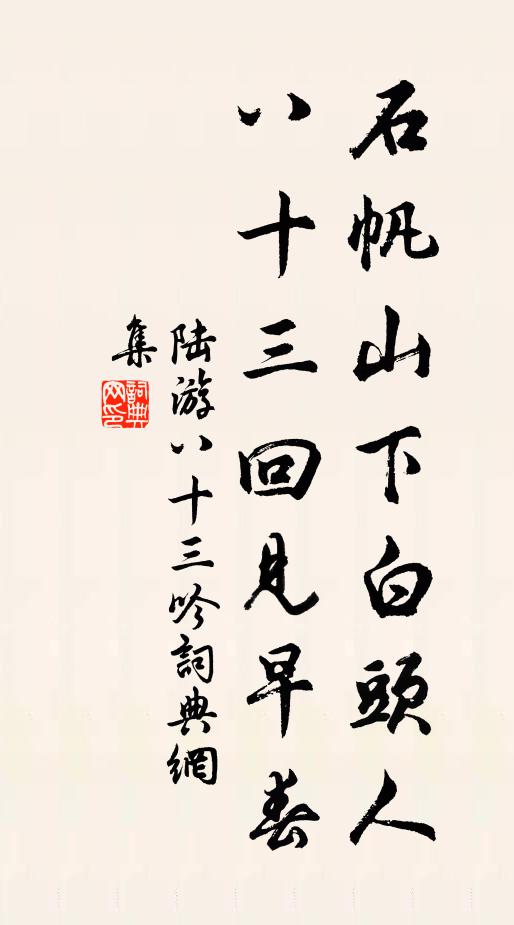 石帆山下白頭人
八十三回見早春
陸游八十三吟詞典網
集
詞典
网印